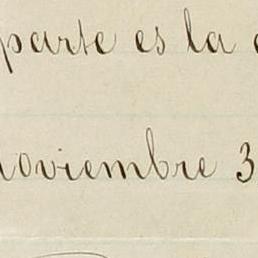 parte es la
noviembre 3